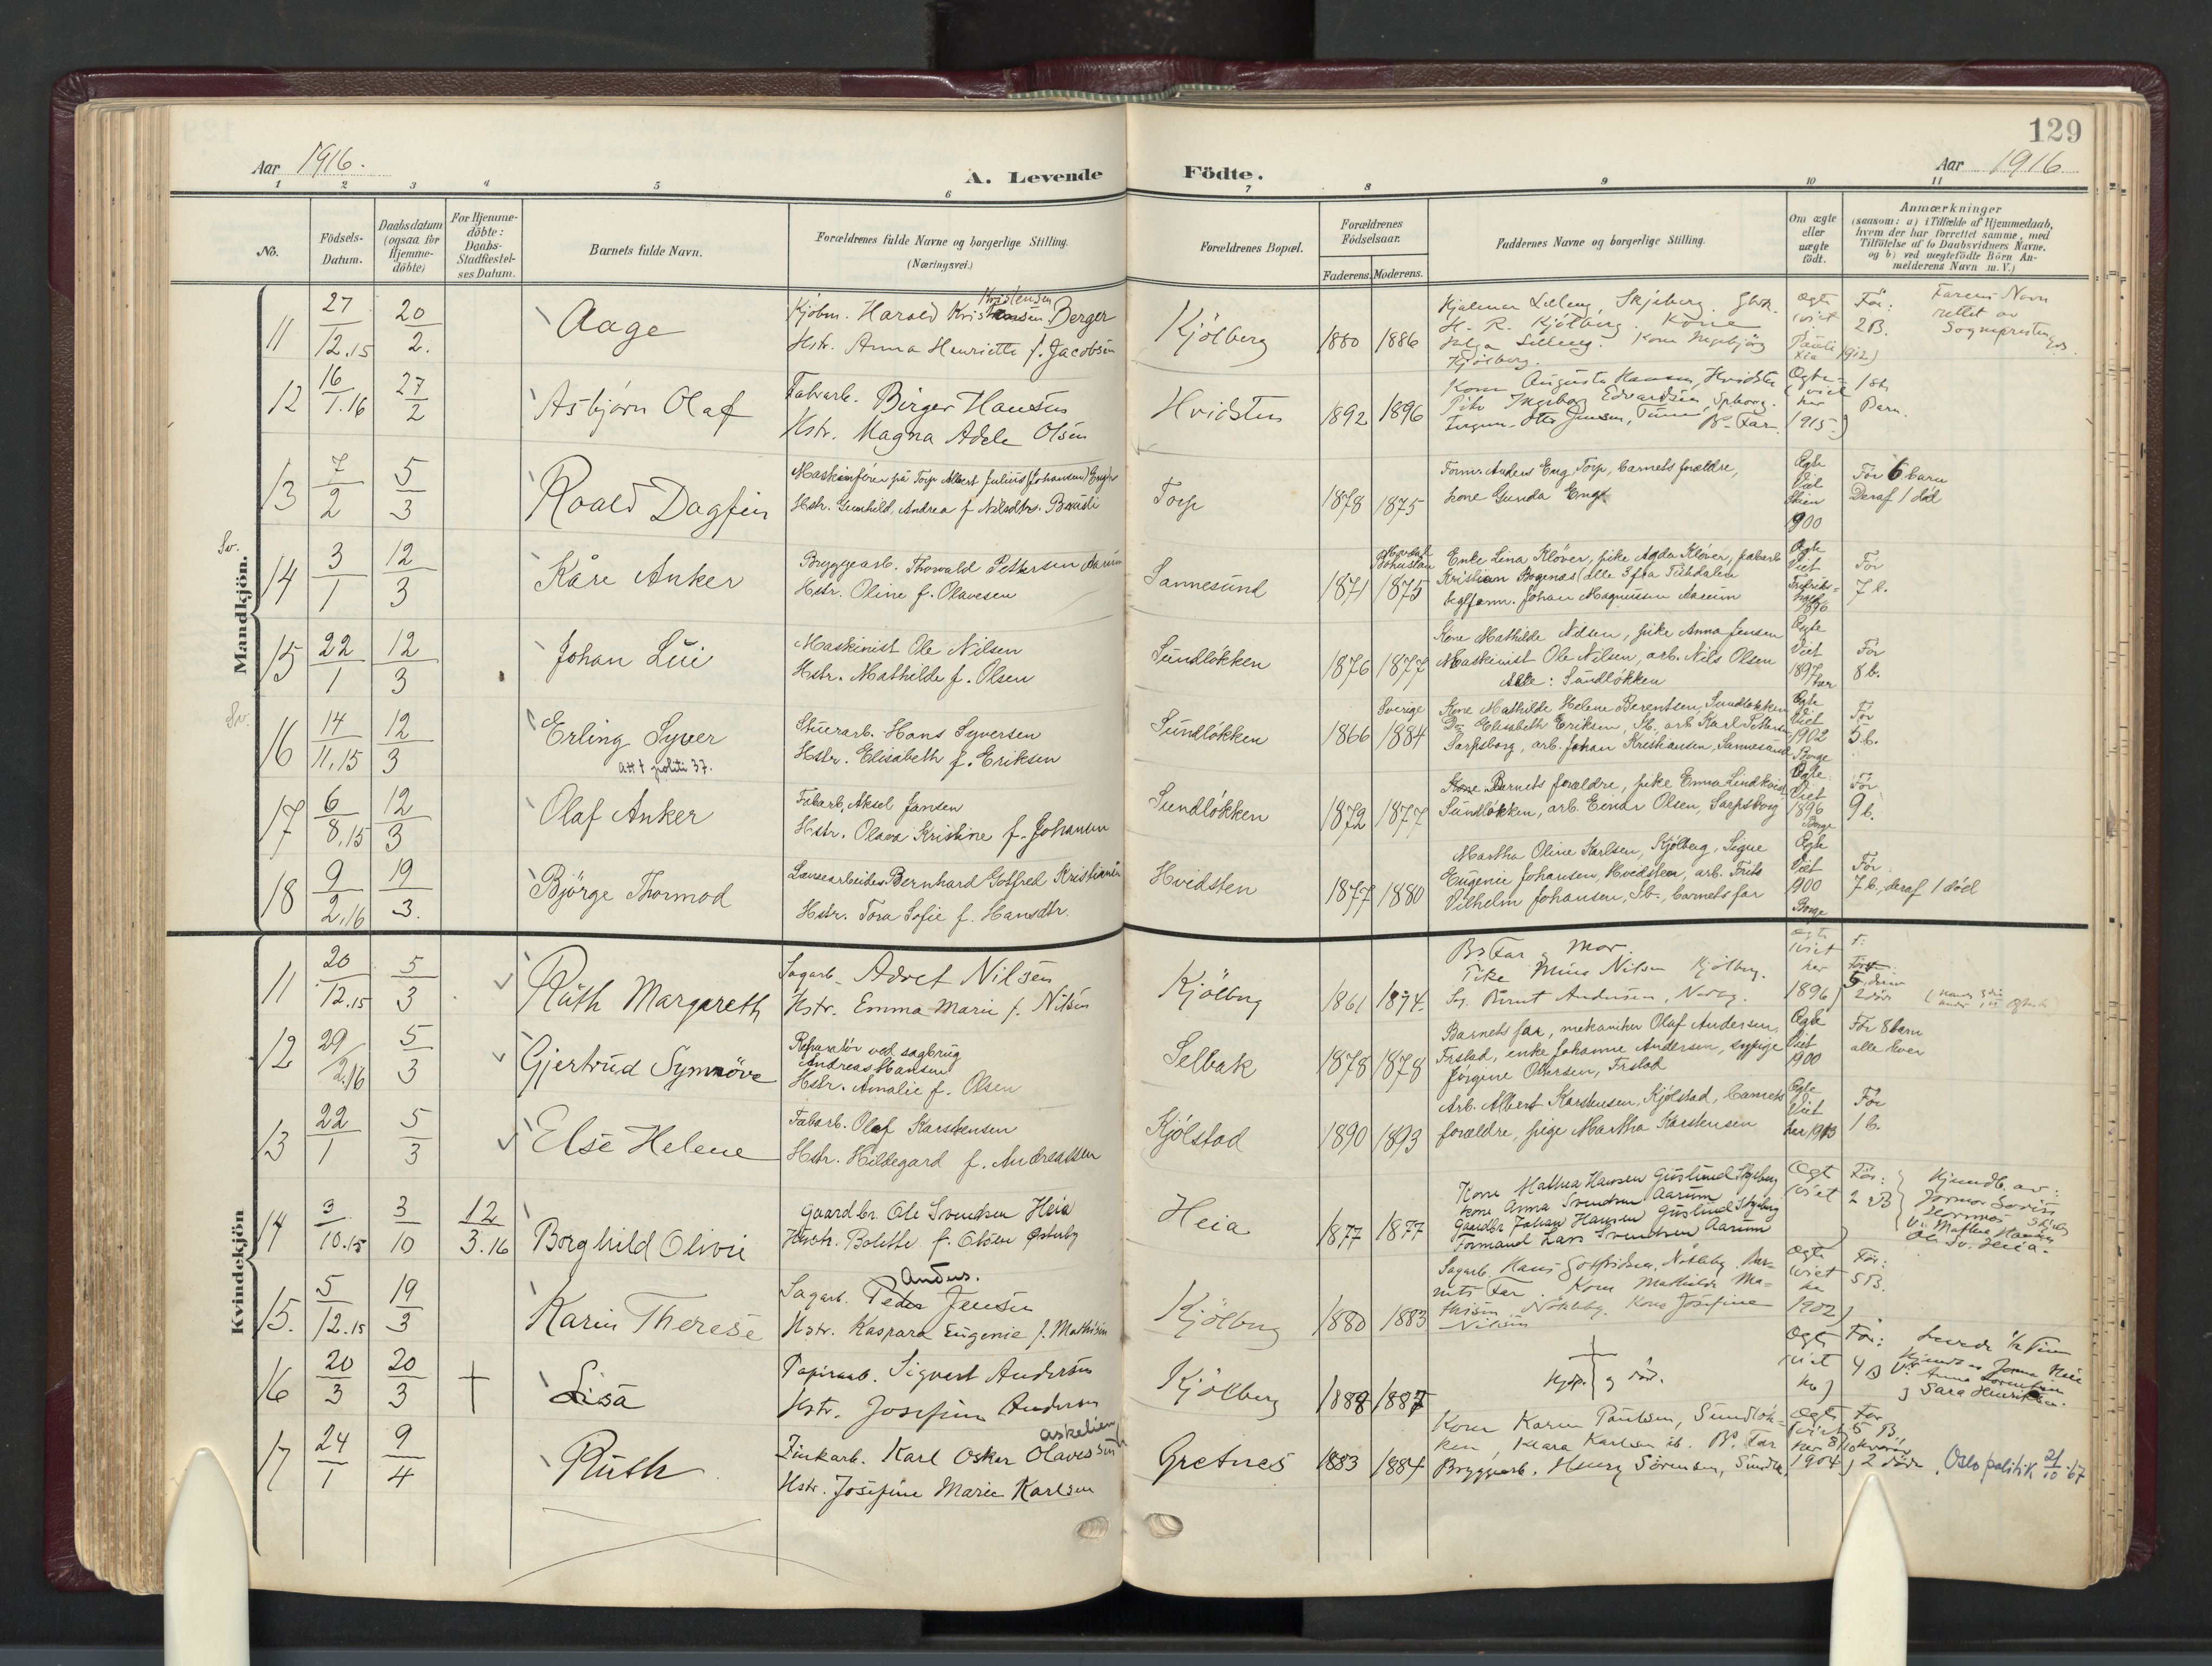 129
Aar 1916.
A. Levende Födte.
Aar 1916
1 2 3 4 5 6 7 8 9 10 11
No.
Födsels-Datum.
Daabsdatum (ogsaa for Hjemme-döbte)
For Hjemme-döbte: Daabs-Stadfæstel-ses Datum.
Barnets fulde Navn.
Forældrenes fulde Navne og borgerlige Stilling. (Næringsvei.)
Forældrenes Bopæl.
Forældrenes Födselsaar.
Faderens. Moderens.
Faddernes Navne og borgerlige Stilling.
Om ægte eller uægte födt.
Anmærkninger
(saasom: a) i Tilfælde af Hjemmedaab,
hvem der har forrettet samme, med
Tilföielse af to Daabsvidners Navne,
og b) ved uægtefödte Börn An-
melderens Navn m. V.)
Mandkjön.
11 27/12.15 20/2. Aage
Kjöbm. Harald Kristensen Berger
Kristensen
Hstr. Anna Henriette f. Jacobsen
Kjölberg 1880 1886
Hjalmar Lilleng, Skjeberg.
H. R. Kjölberg. Kone
Kone Ingebjörg
Kjölberg.
Ægte viet 1912)
Før: 2B.
Farens Navn rettet av Sognepresten
12 16/1.16 27/2 Asbjörn Olaf
Fabrarb. Birger Hansen
Hstr. Magna Adele Olsen
Hvidsten 1892 1896
Kone Augusta Hansen, Hvidsten
Pike Ingeborg Edvardsen, Spborg.
Jensen, Tune, Bs Far.
Ægte (viet her 1915)
1ste Barn.
13 7/2 5/3 Roald Dagfin
Maskinfører på Torp Albert Julius (Johansen) Eng
Hstr. Gunhild Andrea f. Nilsdtr.
Torp 1878 1875
Form. Anders Eng Torp, barnets forældre,
kone Gunda Eng
Ægte Viet Skien 1900
Før 6 barn
Deraf 1 død
Sv.
14 3/1 12/3 Kåre Anker
Bryggearb. Thorvald Pettersen Aarum
Hstr. Oline f. Olavesen
Sannesund 1871 1875
Bohuslän
Enke Lina Klöver, pike Agda Klöver, fabarb
Kristian Bogenæs (alle 3 fra Tistedalen
teglform. Johan Magnussen Aarum
Ægte Viet 1896
Før 7 b.
15 22/1 12/3 Johan Lüi
Maskinist Ole Nilsen
Hstr. Mathilde f. Olsen
Sundløkken 1876 1877
Kone Mathilde Nilsen, pike Anna Jensen
Maskinist Ole Nilsen, arb. Nils Olsen
Alle: Sundløkken
Ægte Viet 1897 her
Før 8 b.
Sv.
16 14/11.15 12/3 Erling Syver
Att t politi 37.
Stuerarb. Hans Syversen
Hstr. Elisabeth f. Eriksen
Sundløkken 1866 1884
Sverige
Kone Mathilde Helene Berentsen, Sundløkken
Do Elisabeth Eriksen, Sb, arb Karl Pettersen
Sarpsborg, arb. Johan Kristiansen, Sannesund
Ægte Viet 1902 Borge
Før 5 b.
17 6/8.15 12/3 Olaf Anker
Fabarb. Aksel Jansen
Hstr. Olava Kristine f. Johansen
Sundløkken 1872 1877
Kone Barnets forældre, pike Emma Lindkvist
Sundløkken, arb. Einar Olsen, Sarpsborg
Ægte Viet 1896 Borge
Før 9 b.
18 9/2.16 19/3. Björge Thormod
Lænsearbeider Bernhard Gotfred Kristiansen
Hstr. Tora Sofie f. Hansdtr.
Hvidsten 1877 1880
Martha Oline Karlsen, Kjølberg, Signe
Eugenie Johansen, Hvidsten, arb. Frits
Vilhelm Johansen, Sb., barnets far
Ægte Viet 1900 Borge
Før 7 b., deraf 1 død
Kvindekjön
11 20/12.15 5/3 Ruth Margareth
Sagarb. Advet Nilsen
Hstr. Emma Marie f. Nilsen
Kjölberg 1861 1874.
Bs Far, Mor.
Pike Nilsen Kjölberg.
Bernt Andersen,
Ægte viet her 1896)
2 døde
12 29/2.16 5/3 Gjertrud Synnöve
Reparatør ved sagbrug
Andreas Hansen
Hstr. Amalie f. Olsen
Selbak 1878 1878
Barnets far, mekaniker Olaf Andersen,
Frstad, enke Johanne Andersen, sypige
Jörgine Ottersen, Frstad
Ægte Viet 1900
Før 8 barn
alle lever
13 22/1 5/3 Else Helene
Fabarb. Olaf Karstensen
Hstr. Hildegard f. Andreassen
Kjölstad 1890 1893
Arb. Albert Karstensen, Kjölstad, barnets
forældre, pige Martha Karstensen
Ægte Viet her 1913
Før 1 b.
14 3/10.15 3/10 12/3.16 Borghild Olivie
Gaardbr. Ole Svendsen Heia
Hstr. Bolette f. Olsen Østerby
Heia 1877 1877
Kone Mathea Hansen Guslund Skjeberg
kone Anna Svendsen Aarum
Gaardbr Johan Hansen Guslund Skjeberg
Formand Lars Svendsen Aarum
Ægte viet
Før: 2 B
Hjemdb. av:
V: Mathea Hansen
Ole Sv. Heia.
15. 5/12.15 19/3 Karin Therese
Anders.
Sagarb. Peder Jensen
Hstr. Kaspara Eugenie f. Mathisen
Kjölberg 1880 1883
Sagarb. Hans Gotfridsen, Nokleby. Bar-
nets Far. Kone Mathilde Ma-
thisen Nokleby. Kone Josefine
Nilsen
Ægte viet her 1902)
Før: 5B.
16 20/3 20/3 † Lisa
Papirarb. Sigvart Andersen
Hstr. Josefine Andersen
Kjölberg 1888 1887
Hjdp. og død.
Ægte viet her)
Før: 4 B
Levede 1/2 Time
V: Anna
og Sara Henriksen.
17 24/1 9/4 Ruth
Askelien
Zinkarb. Karl Oskar Olavessen
Hstr. Josefine Marie Karlsen
Gretnes 1883 1884
Kone Karen Paulsen, Sundløk-
ken, Klara Karlsen ib. Bs. Far
Bryggearb. Henry Sörensen, Sundl.
Ægte (viet her 8/10 1904)
Før 5 B, hvorav 2 døde
Oslo politik 21/10 67